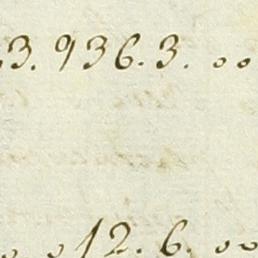 3. 936. 3. oo
o 12. 6. oo